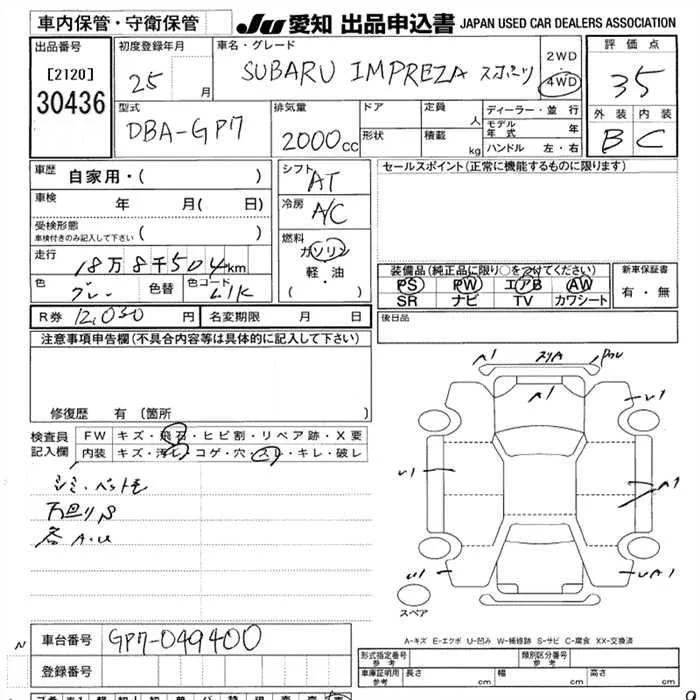 車内保管・守衛保管
JU 愛知 出品申込書 JAPAN USED CAR DEALERS ASSOCIATION
出品番号
[2120]
30436
初度登録年月
25 月
車名・グレード
SUBARU IMPREZA スポーツ
2WD
4WD
評価点
35
外装 内装
B C
型式
DBA-GP7
排気量
2000cc
ドア
形状
定員 人
積載 kg
ディーラー・並行
モデル年式 年
ハンドル 左・右
車歴 自家用・( )
車検 年 月( 日)
受検形態
車検付きのみ記入して下さい ( )
走行 18万8千504km
色 グレー 色替 色コード 61K
シフト
AT
冷房
A/C
燃料
ガソリン
軽・油
( ・ )
セールスポイント(正常に機能するものに限ります)
装備品(純正品に限り○をつけてください)
PS PW エアB AW
SR ナビ TV カワシート
新車保証書
有・無
R券 12,030 円 名変期限 月 日
後日品
注意事項申告欄(不具合内容等は具体的に記入して下さい)
修復歴 有(箇所 )
検査員
記入欄
FW キズ・飛石・ヒビ割・リペア跡・X要
内装 キズ・汚レ・コゲ・穴・スレ・キレ・破レ
シミ・ペット毛
下回りS
各A・U
A1
A1
U1
U1
A1
U1
UA1
スペア
A-キズ E-エクボ U-凹み W-補修跡 S-サビ C-腐食 XX-交換済
車台番号 GP7-049400
登録番号
形式指定番号
参考
類別区分番号
参考
車庫証明用
参考
長さ cm 幅 cm 高さ cm